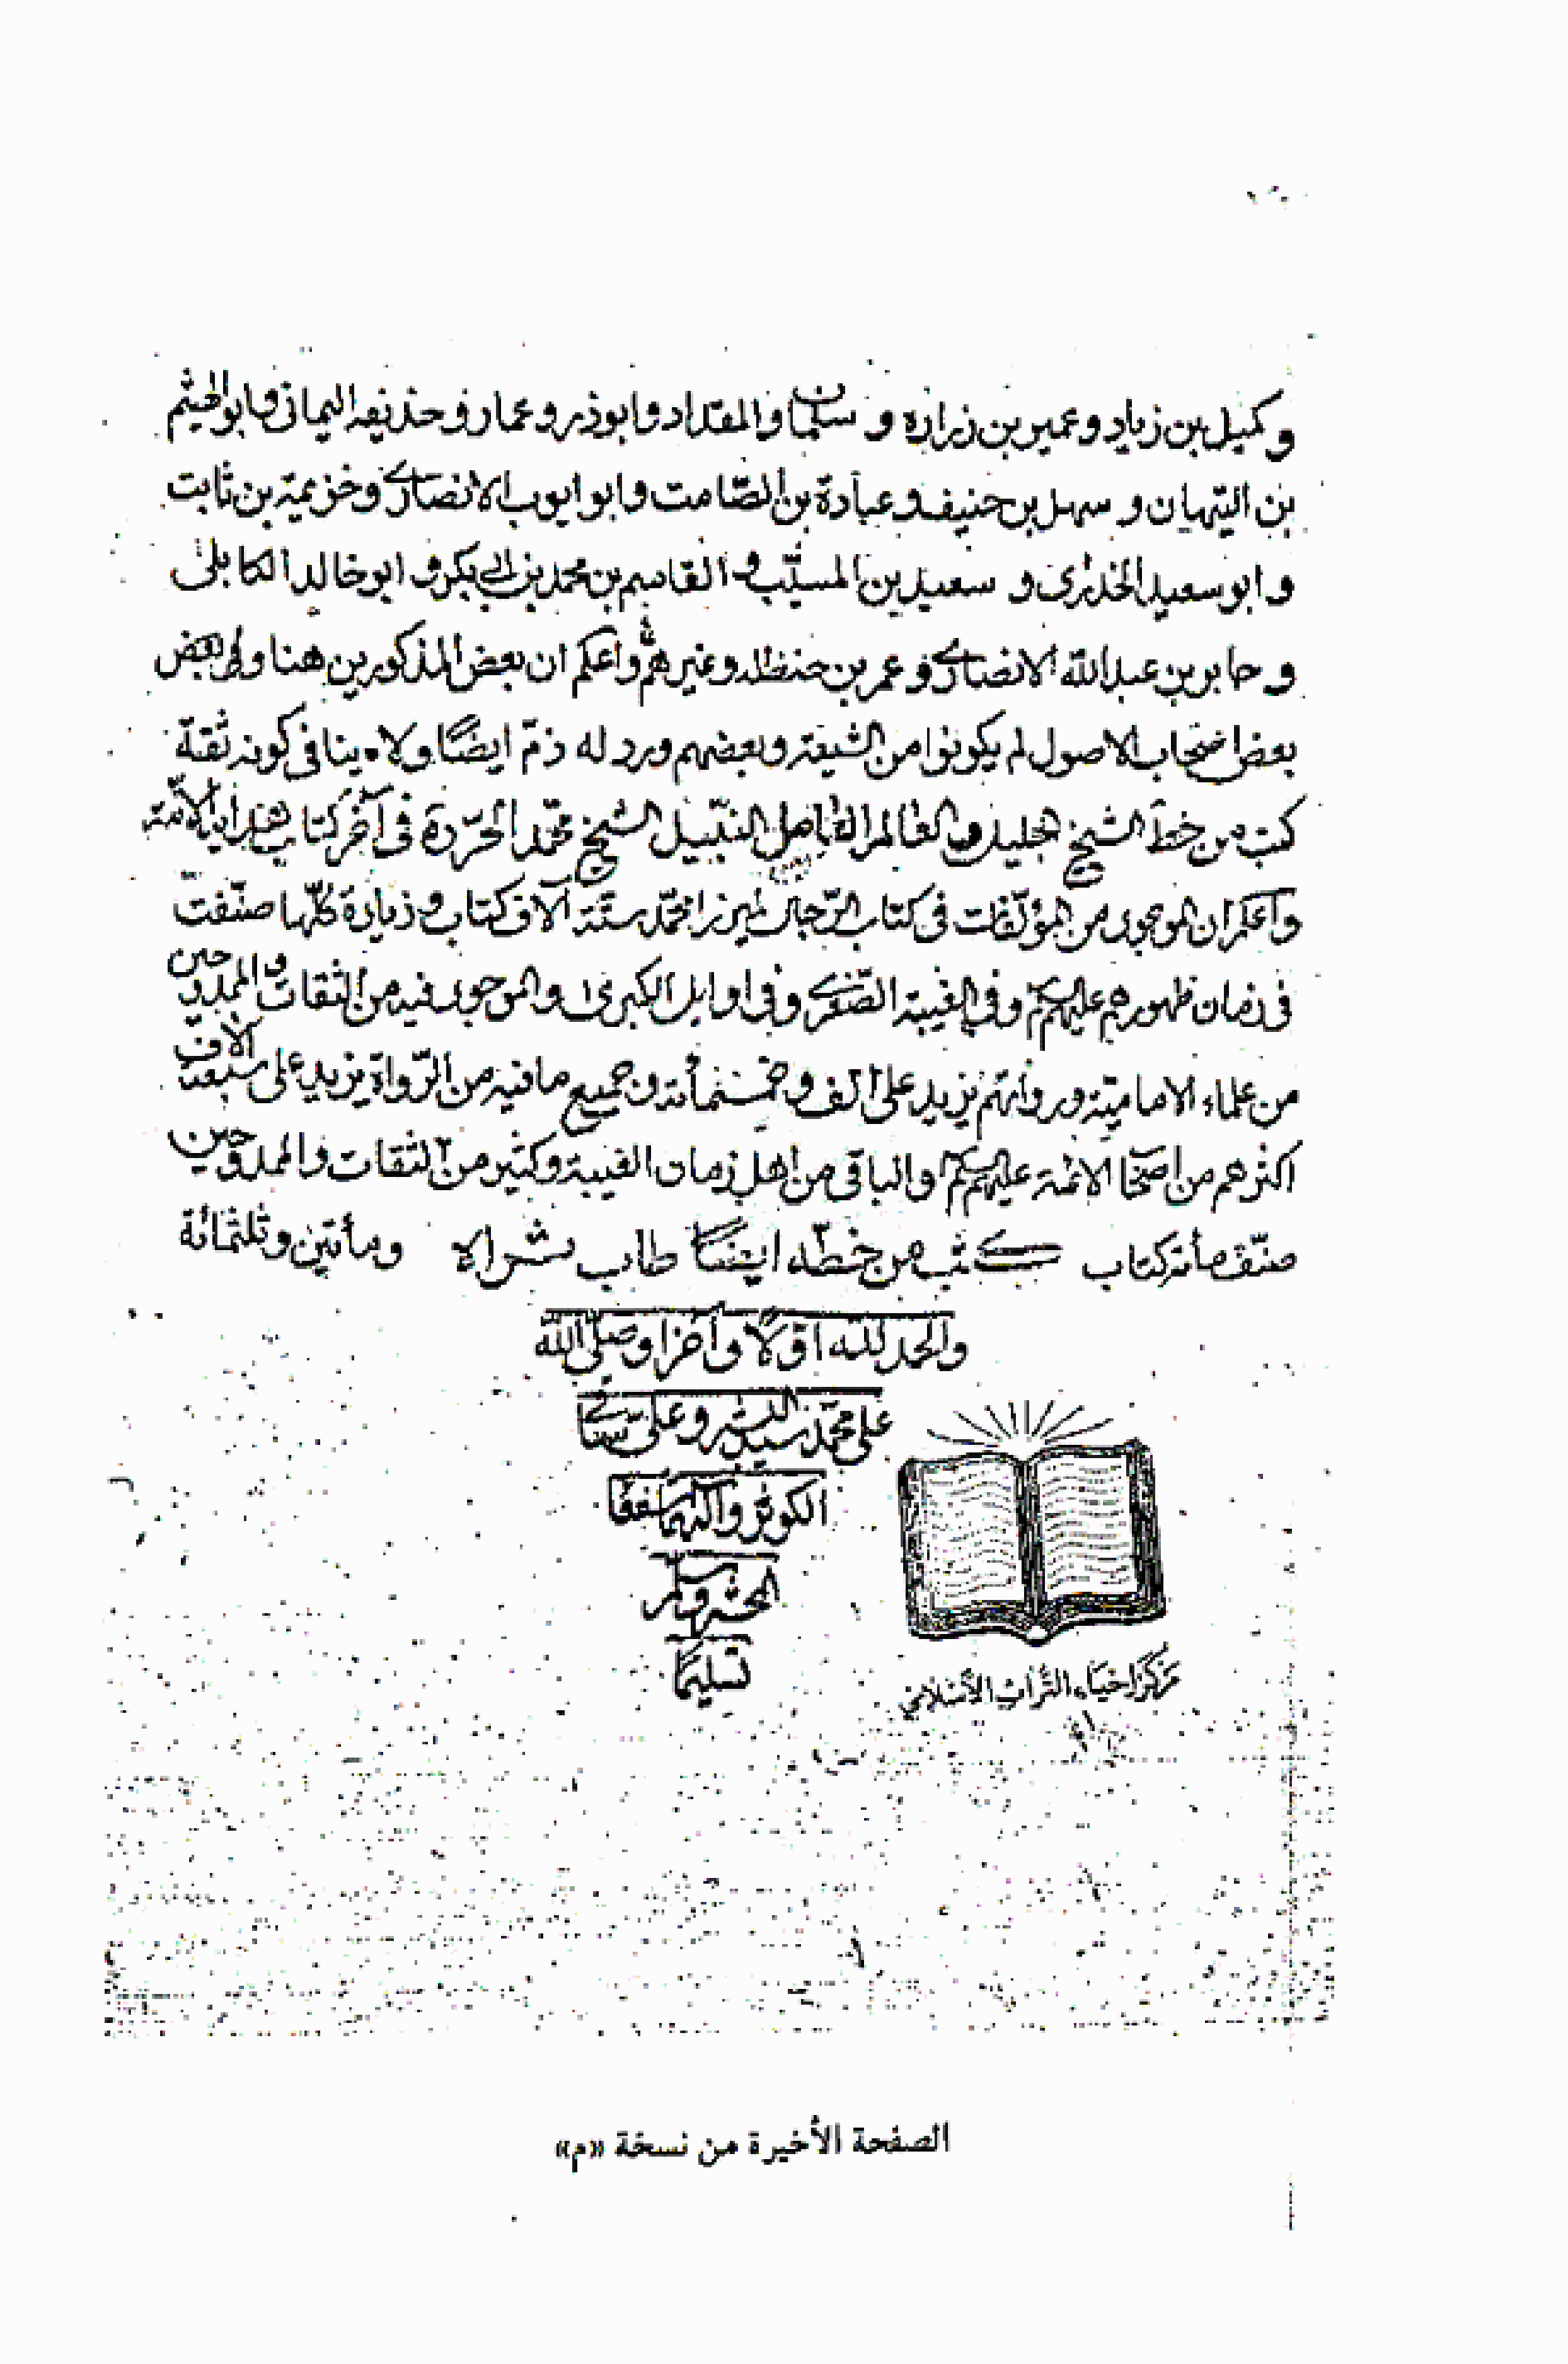 وكميل بن زياد وعمير بن زراره و سلمان والمقداد وابوذر وعمار وحذيفه اليمانى وابو الهيثم
بن التيهان و سهل بن حنيف وعبادة بن الصّامت وابو ايوب الانصارى وخزيمة بن ثابت
و ابو سعيد الخدرى و سعيد بن المسيّب و القاسم بن محمد بن ابى بكر و ابو خالد الكابلى
و جابر بن عبد الله الانصارى و عمر بن حنظله وغيرهم واعلم ان بعض المذكورين هنا وفى بعض
بعض اصحاب الاصول لم يكونوا من الشيعة وبعضهم ورد له ذمّ ايضًا ولا ينافى كونه ثقة
كتب من خط الشيخ الجليل و العالم الفاضل النبيل الشيخ محمّد الحرّ فى آخر كتاب
واعلم ان الموجود من المؤلّفات فى كتاب الرّجال لميرزا محمّد ستّة آلاف كتاب وزيادة كلّها صنّفت
فى زمان ظهورهم عليهم السلم وفى الغيبة الصّغرى وفى اوايل الكبرى والموجود فيه من الثقات و الممدوحين
من علماء الاماميّة ورواتهم يزيد على الف وخمسمأة وجميع ما فيه من الرّواة يزيد على سبعة آلاف
اكثرهم من اصحاب الائمّة عليهم السلم والباقى من اهل زمان الغيبة وكثير من الثقات والممدوحين
صنّف مأة كتاب ومأتين وثلثمائة كتب من خطّه ايضًا طاب ثراه
والحمد لله اوّلًا وآخرا وصلّى الله
على محمّد سيد البشر وعلىّ ساقى
الكوثر وآلهما شفعاء
المحشر وسلم
تسليمًا
مركز احياء التراث الاسلامي
الصفحة الأخيرة من نسخة «م»